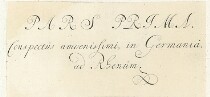 PARS PRIMA.
Conspectus amoenissimi, in Germaniâ
ad Rhenum.